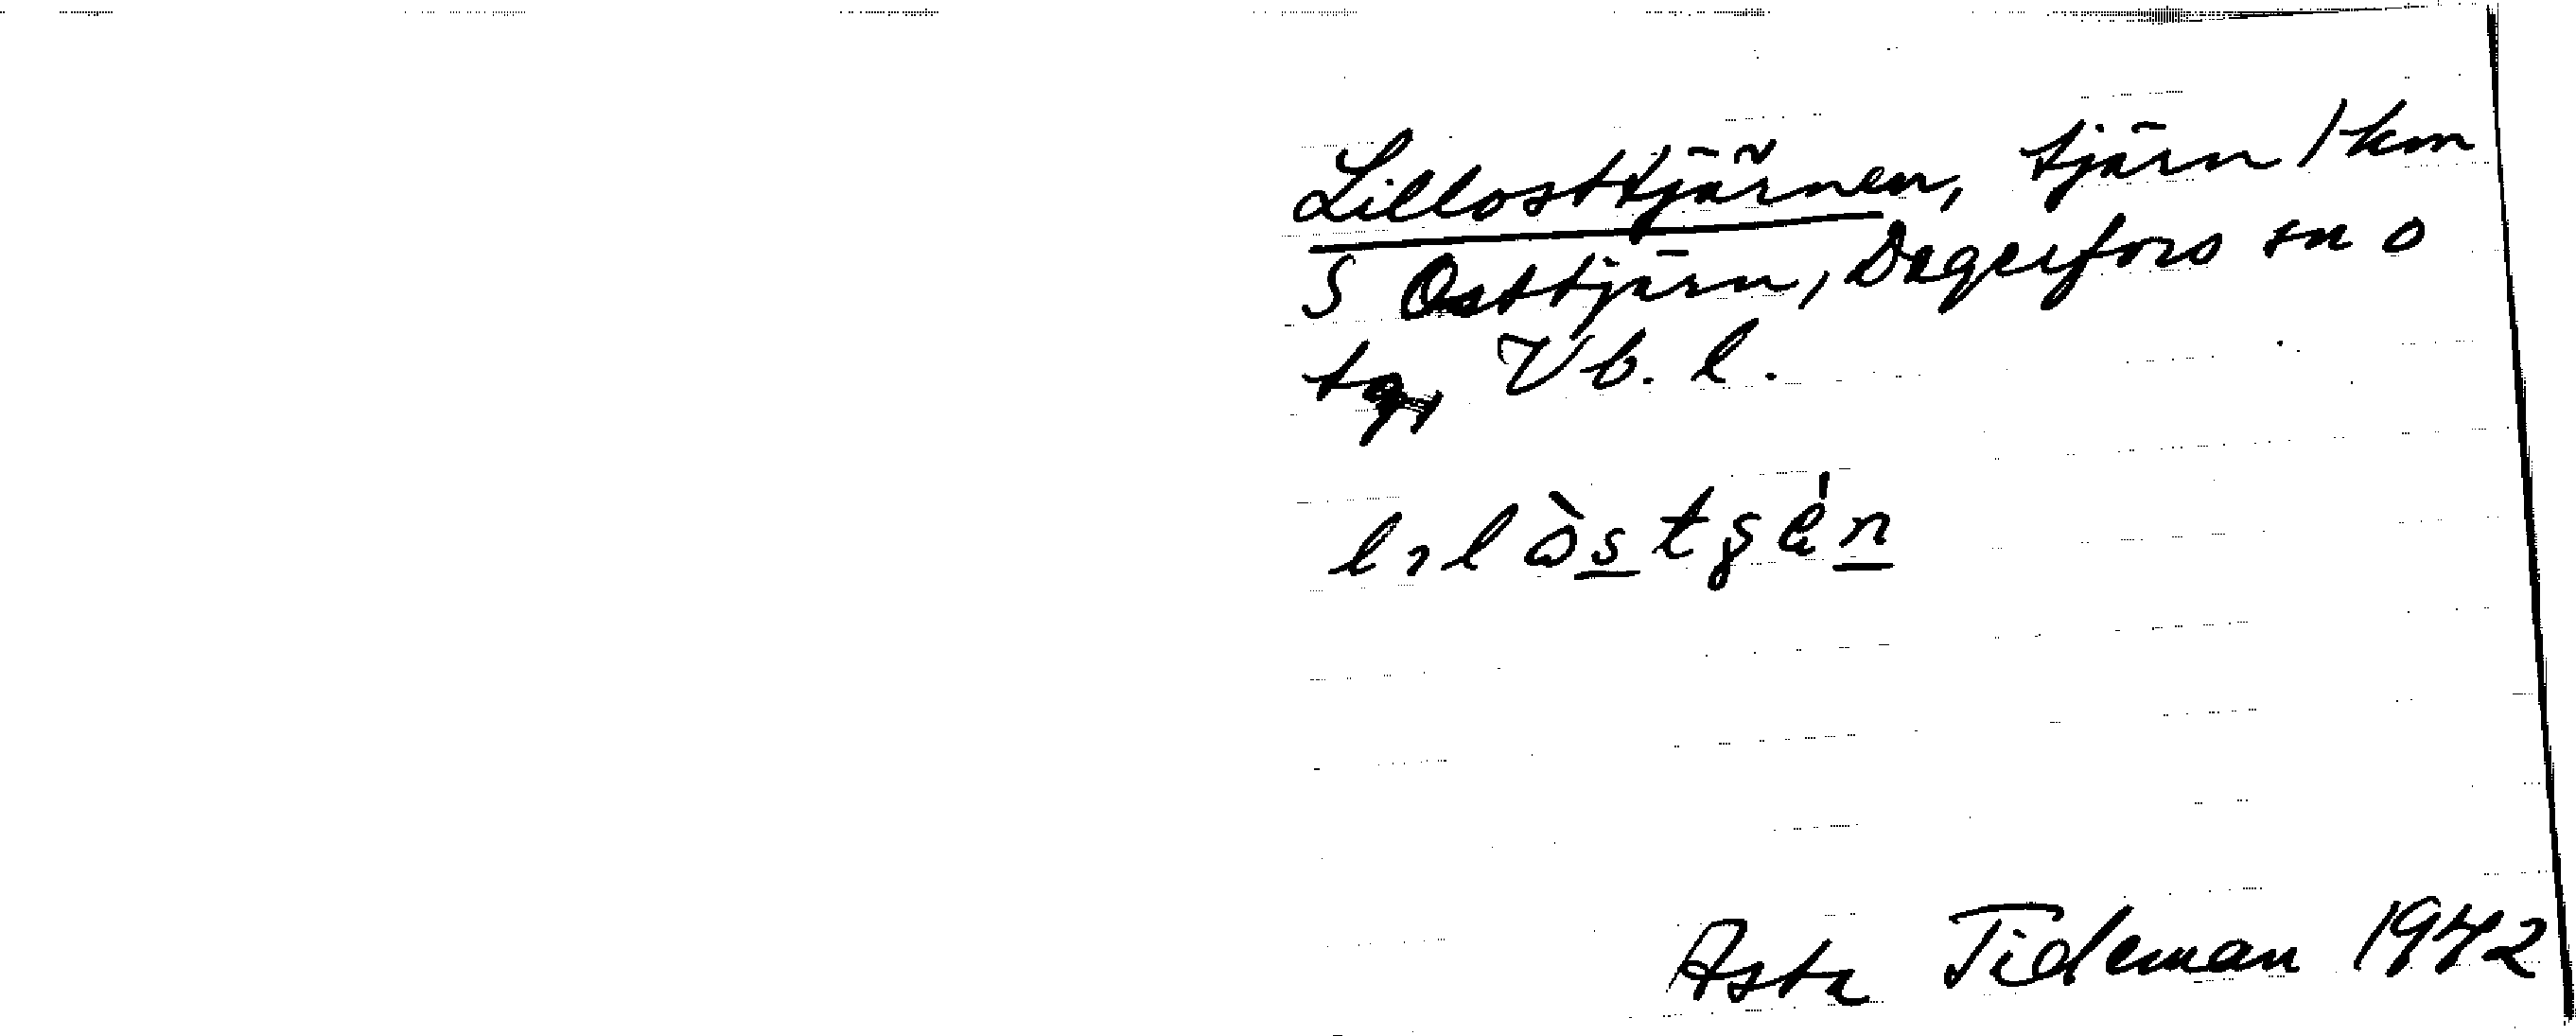 Lillosttjärnen, tjärn 1 km
S Osttjärn, Degerfors sn o
tg, Vb. l.
Asta Tideman 1942